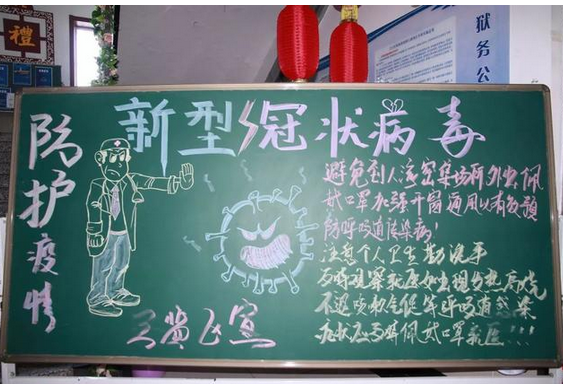 禮
狱务公
新型冠状病毒
防护疫情
避免到人流密集场所外出佩
戴口罩加强开窗通风以有效预
防呼吸道传染病!
注意个人卫生勤洗手
及时观察就医如出现发热、高烧
不退咳嗽气促等呼吸道感染
症状应及时佩戴口罩就医!!!